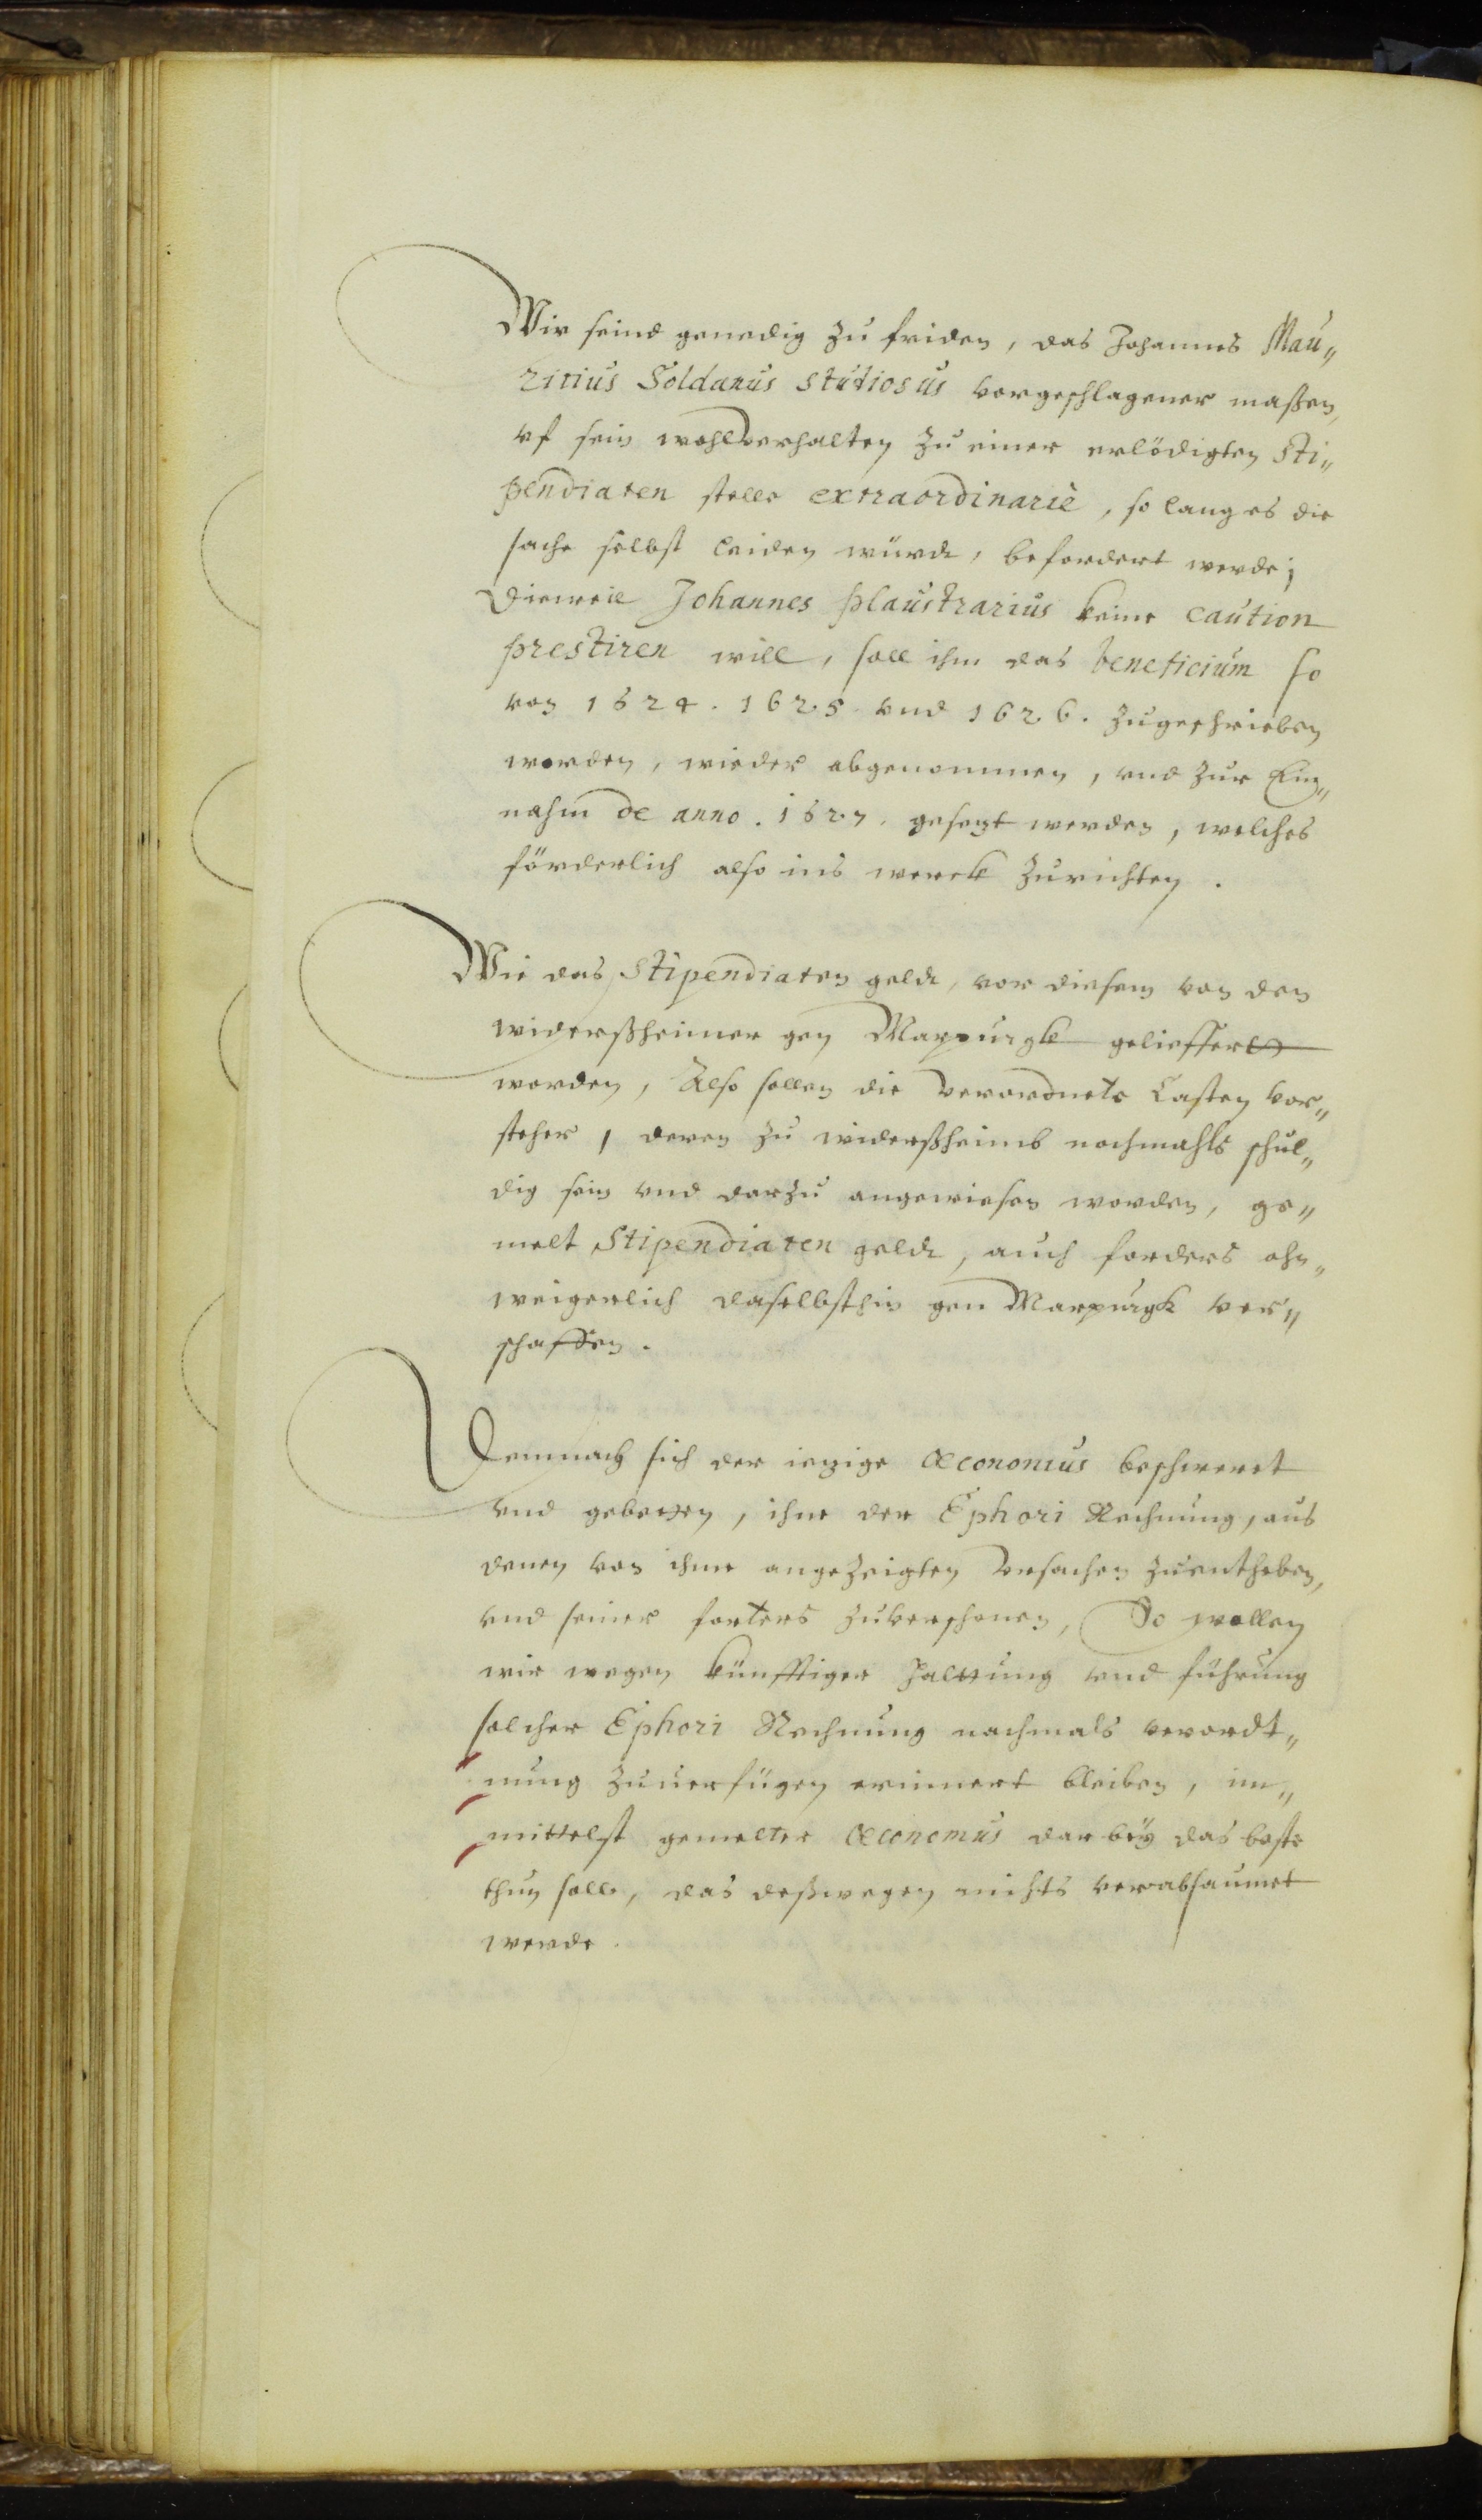 Wir seind genedig zu friden, das Johannes Mau„
ritius Soldanus studiosus vorgeschlagener maßen,
vf sein wohlverhalten zu einer erlödigten Sti„
pendiaten stelle extraordinariè, so lang es die
sache selbst leiden würdt, befordert werde;
Dieweil Johannes plaustrarius keine caution
prestiren will, soll ihm das beneficium so
von 1624. 1625 vnd 1626. zugeschrieben
worden, wieder abgenommen, vnd zur Ein„
nahm de anno. 1627. gesezt werden, welches
förderlich also ins werck zurichten.
Wie das Stipendiaten geldt, vor diesem von den
widerßheimer gen Marpurgk geliffert
worden, Also sollen die verordnete Casten vor„
steher, deren zu widerßheimb nochmahls schul„
dig sein vnd darzu angewiesen worden, ge„
melt Stipendiaten geldt, auch forders ohn„
weigerlich daselbsthin gen Marpurgk ver„
schaffen.
Demnach sich der iezige œconomus beschweret
vnd gebetten, ihne der Ephori Rechnung, aus
denen von ihme angezeigten vrsachen zuentheben,
vnd seiner forters zuverschonen, So wollen
wir wegen künfftiger Haltung vnd führung
solcher Ephori Rechnung nachmals verordt„
nung zuuerfügen erinnert bleiben, im„
mittelst gemelter œconomus darbey das beste
thun soll, das deßwegen nichts verabsaumet
werde.